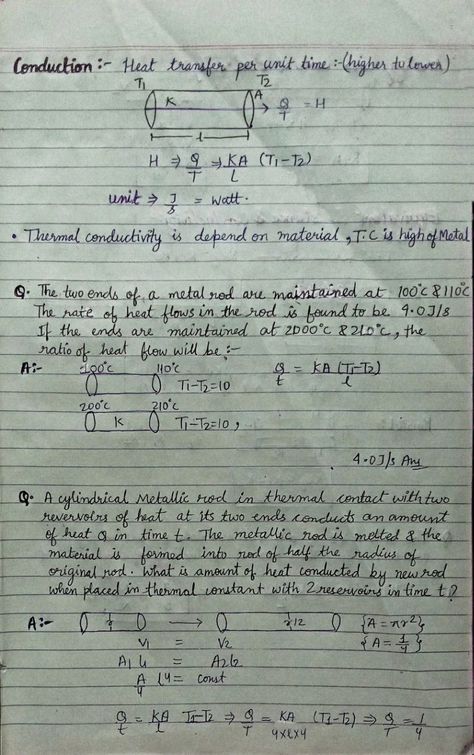 Conduction :- Heat transfer per unit time :- (higher to lower)
T1 T2
K A → Q/T = H
l
H ⇒ Q/T ⇒ KA/L (T1-T2)
unit ⇒ J/s = watt.
• Thermal conductivity is depend on material, T.C is high of Metal
Q. The two ends of a metal rod are maintained at 100°C & 110°C
The rate of heat flows in the rod is found to be 4.0 J/s
If the ends are maintained at 2000°C & 210°C, the
ratio of heat flow will be :-
A:- 100°C 110°C Q/t = KA (T1-T2)/l
T1-T2=10
200°C 210°C
K T1-T2=10,
4.0 J/s Ans
Q. A cylindrical Metallic rod in thermal contact with two
revervoirs of heat at its two ends conducts an amount
of heat Q in time t. The metallic rod is melted & the
material is formed into rod of half the radius of
original rod. What is amount of heat conducted by new rod
when placed in thermal constant with 2 reservoirs in time t?
A:- → {A = πr²}
{A = 1/4}
V1 = V2
A1 l1 = A2l2
A/4 l4 = const
Q/t = KA/l T1-T2 ⇒ Q/T = KA/4x4xl (T1-T2) ⇒ Q/T = 1/4